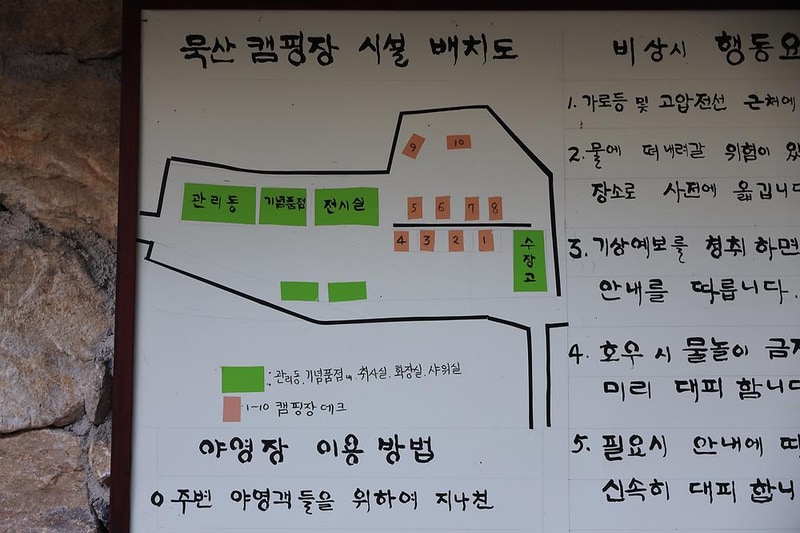 묵산 캠핑장 시설 배치도
9
10
관리동
기념품점
전시실
5 6 7 8
4 3 2 1
수장고
: 관리동, 기념품점 취사실, 화장실, 샤워실
1-10 캠핑장 데크
야영장 이용 방법
o 주변 야영객들을 위하여 지나친
비상시 행동요
1. 가로등 및 고압전선 근처에
2. 물에 떠내려갈 위험이 있
장소로 사전에 옮깁니다
3. 기상예보를 청취하면
안내를 따릅니다.
4. 호우 시 물놀이 금지
미리 대피 합니다
5. 필요시 안내에 따
신속히 대피 합니